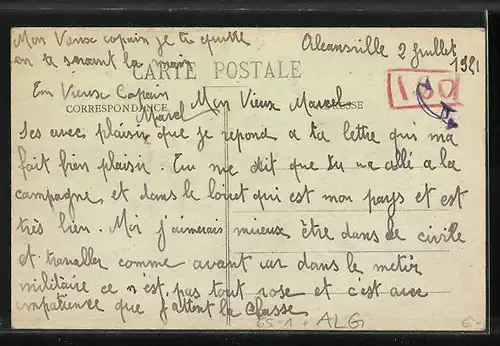 Mon Vieux copain je te quitte
en te serrant la main
Orleansville 2 Juillet
1921
CARTE POSTALE
Ton Vieux Copain
CORRESPONDANCE
Marcel
Mon Vieux Marcel
160
Ses avec plaisir que je repond a ta lettre qui ma
fait bien plaisir. Tu me dit que tu allé a la
campagne et dans le loiret qui est mon pays et est
très bien. Moi j'aimerais mieux être dans le civile
et travailler comme avant car dans le metier
militaire ce n'est pas tout rose et c'est avec
impatience que j'attent la classe
65-1 + ALG